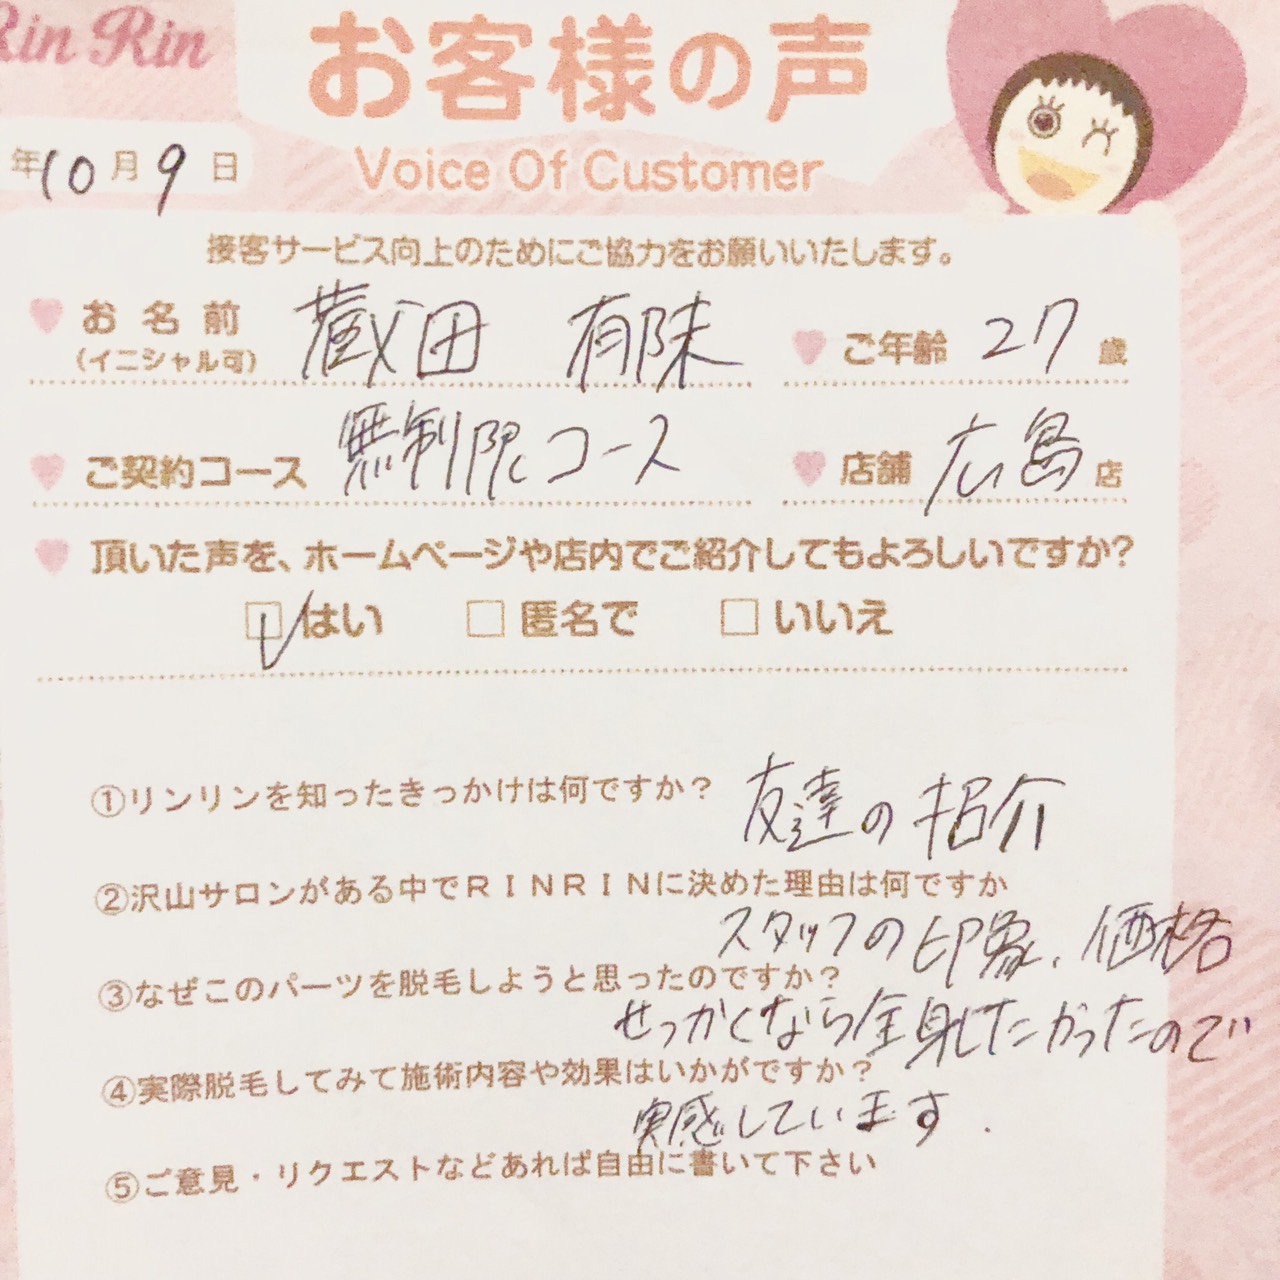 Rin Rin
お客様の声
Voice Of Customer
年10月9日
接客サービス向上のためにご協力をお願いいたします。
お名前 蔵田 有未 ご年齢 27 歳
(イニシャル可)
ご契約コース 無制限コース 店舗 広島 店
頂いた声を、ホームページや店内でご紹介してもよろしいですか?
はい 匿名で いいえ
①リンリンを知ったきっかけは何ですか? 友達の紹介
②沢山サロンがある中でRINRINに決めた理由は何ですか
スタッフの印象、価格
③なぜこのパーツを脱毛しようと思ったのですか?
せっかくなら全身したかったので
④実際脱毛してみて施術内容や効果はいかがですか?
実感しています.
⑤ご意見・リクエストなどあれば自由に書いて下さい